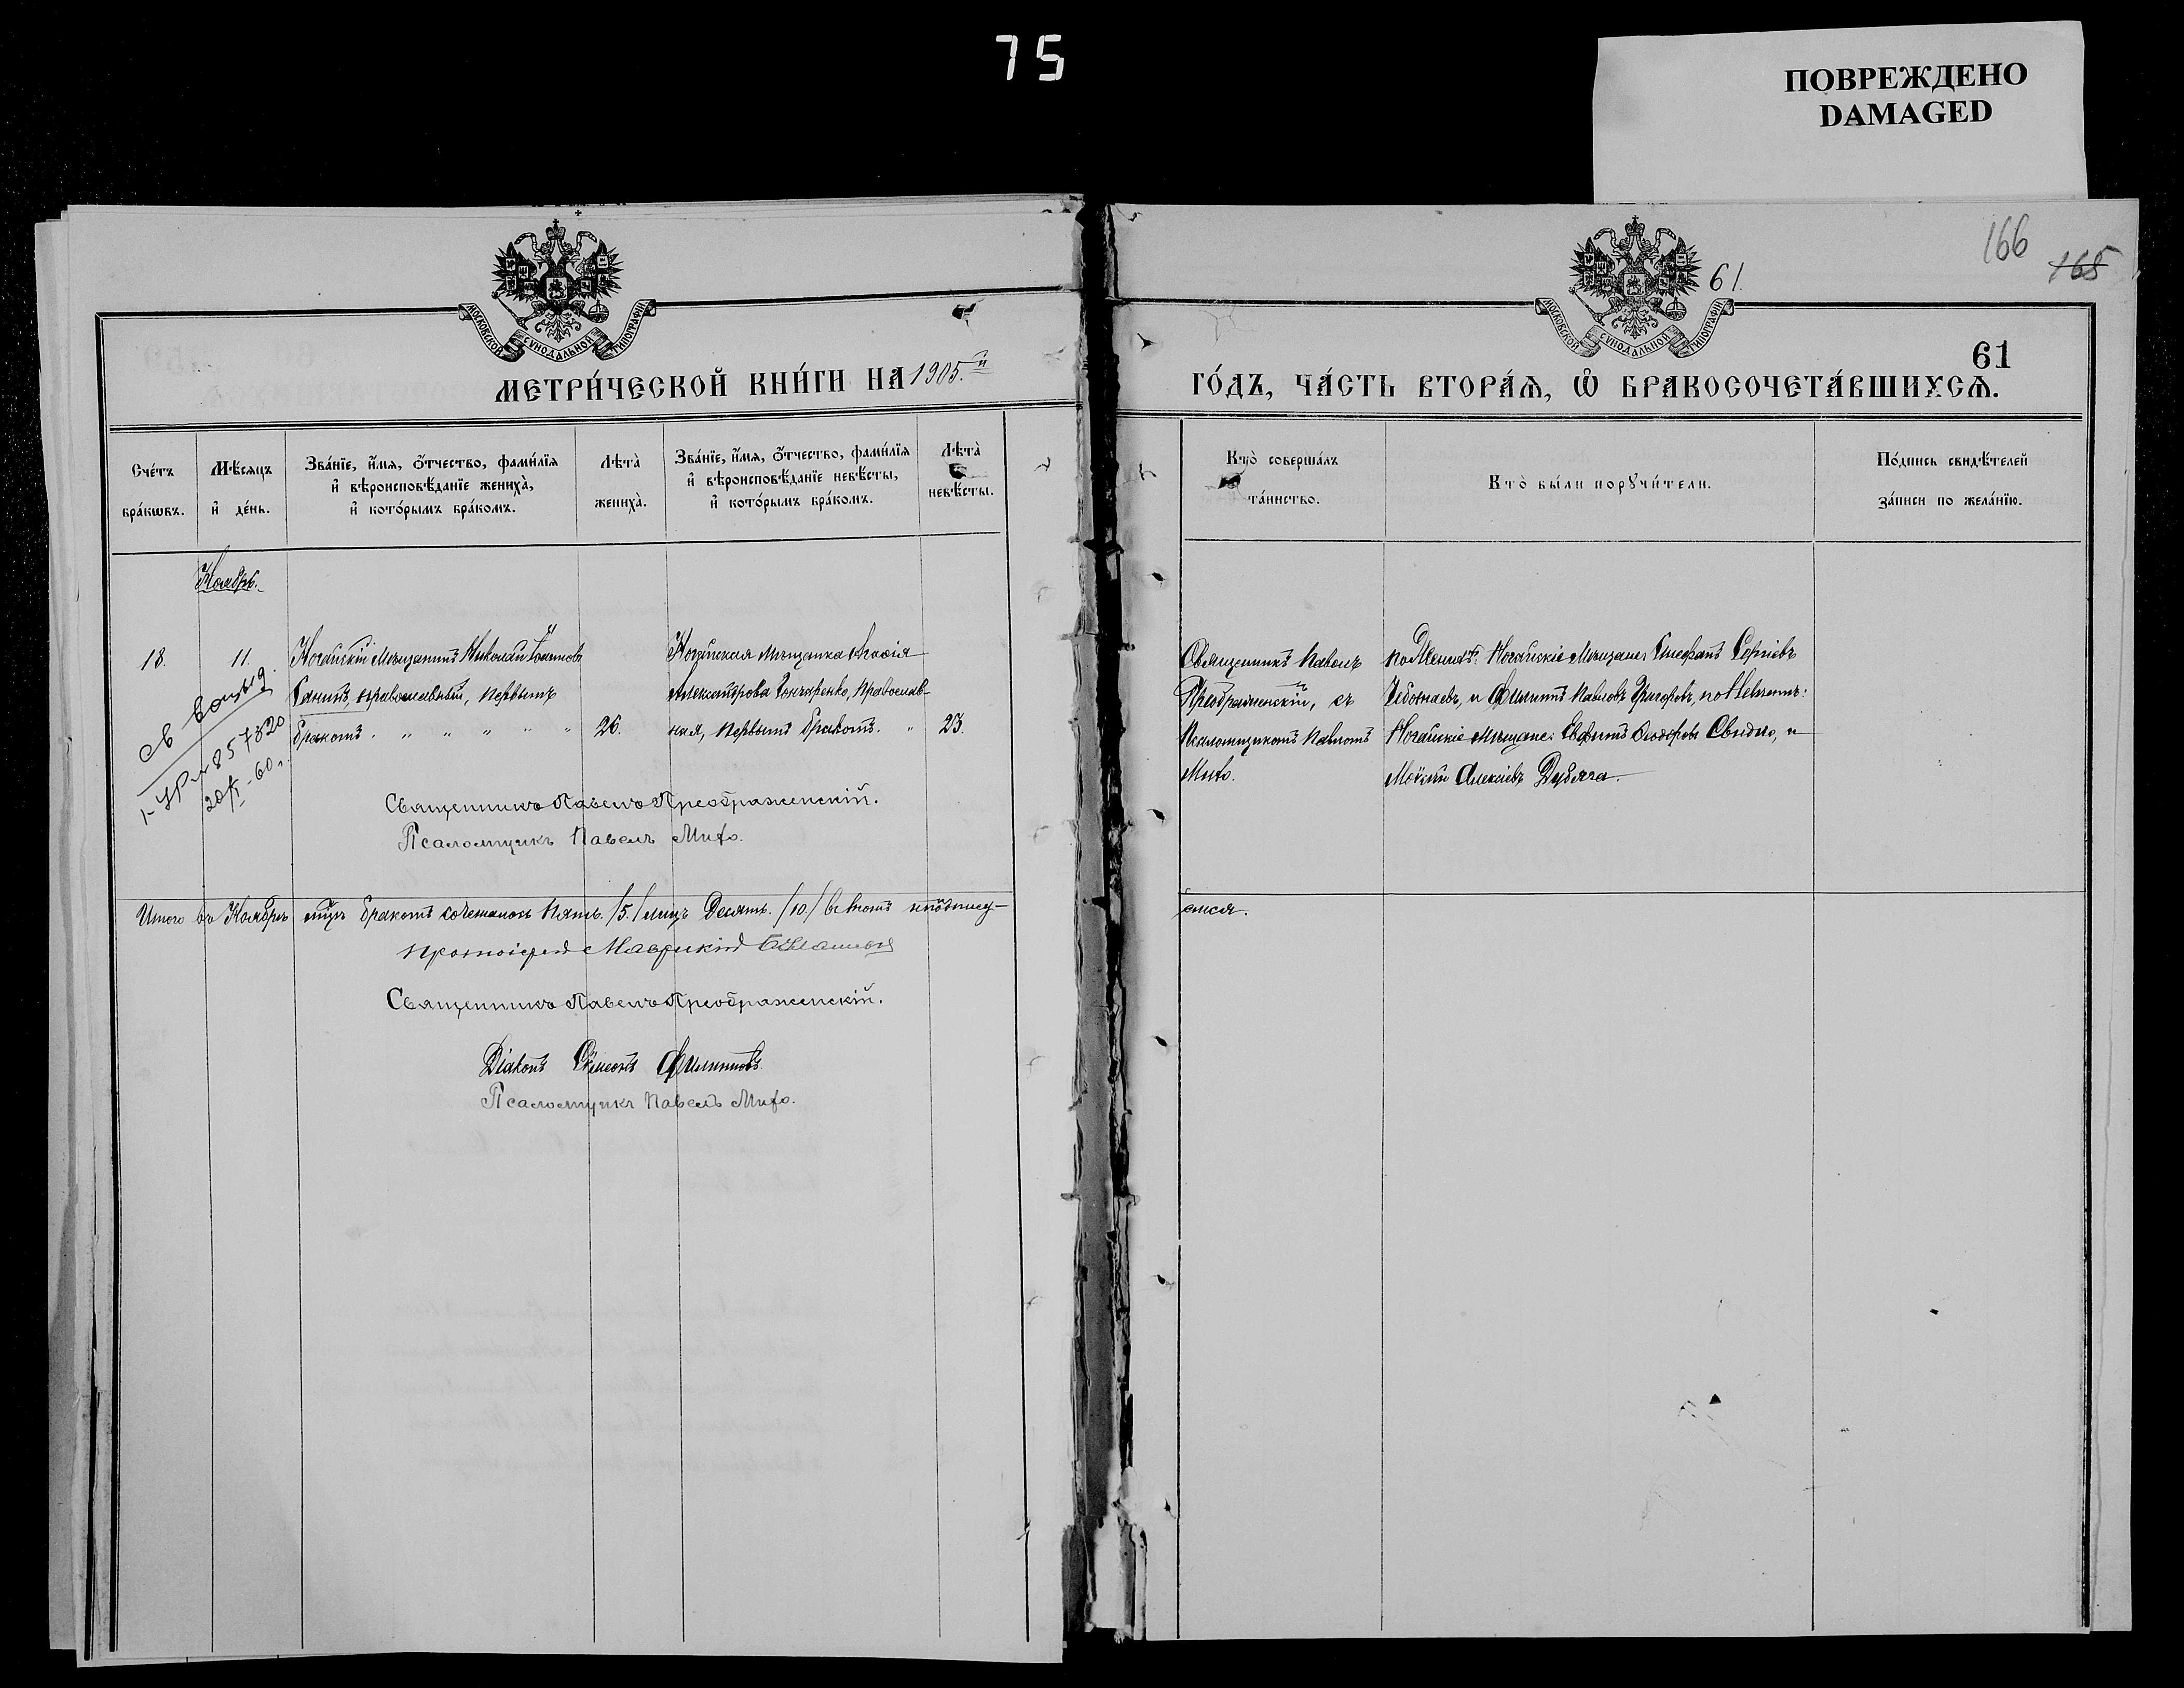 75
ПОВРЕЖДЕНО
DAMAGED
166
165
61.
61
МОСКОВСКОЙ СѴНОДАЛЬНОЙ ТИПОГРАФІИ
МОСКОВСКОЙ СѴНОДАЛЬНОЙ ТИПОГРАФІИ
МЕТРИ́ЧЕСКОЙ КНИ́ГИ НА 1905.й
ГО́ДЪ, ЧА́СТЬ ВТОРА́Ѧ, Ѽ БРАКОСОЧЕТА́ВШИХСѦ.
Сче́тъ бра́кѡвъ.
Мѣ́сяцъ и҆ де́нь.
Зва́нїе, и҆́мя, ѻ҆́тчество, фами́лїя
и҆ вѣроисповѣ́данїе жениха̀,
и҆ кото́рымъ бра́комъ.
Лѣта̀ жениха̀.
Зва́нїе, и҆́мя, ѻ҆́тчество, фами́лїя
и҆ вѣроисповѣ́данїе невѣ́сты,
и҆ кото́рымъ бра́комъ.
Лѣта̀ невѣ́сты.
Кто̀ соверша́лъ та́инство.
Кто̀ бы́ли порꙋчи́тели.
По́дпись свидѣ́телей
за́писи по жела́нїю.
Ноябрь.
18.
11.
Ногайскій Мѣщанинъ Николай Іоанновъ
православный, первымъ
бракомъ. " " " " "
26.
Ногайская Мѣщанка Агафія
Александрова Гончаренко, православ-
ная, первымъ бракомъ. "
23.
Священникъ Павелъ
Преображенскій, съ
Псаломщикомъ Павломъ
Мифо.
по Женихѣ: Ногайскіе Мѣщане: Сергіевъ
и Филиппъ Павловъ Григоровъ, по Невѣстѣ:
Ногайскіе Мѣщане: Евфимъ Ѳеодоровъ Свидло, и
Мойсей Алексіевъ Дубяга.
857820
20/X-60г.
Священникъ Павелъ Преображенскій.
Псаломщикъ Павелъ Мифо.
Итого въ Ноябрѣ м-цѣ бракомъ сочеталось Пять. /5./ лицъ Десять. /10./ въ томъ и подпису-
емся.
Протоіерей Маврикій
Священникъ Павелъ Преображенскій.
Діаконъ Симеонъ Филипповъ.
Псаломщикъ Павелъ Мифо.